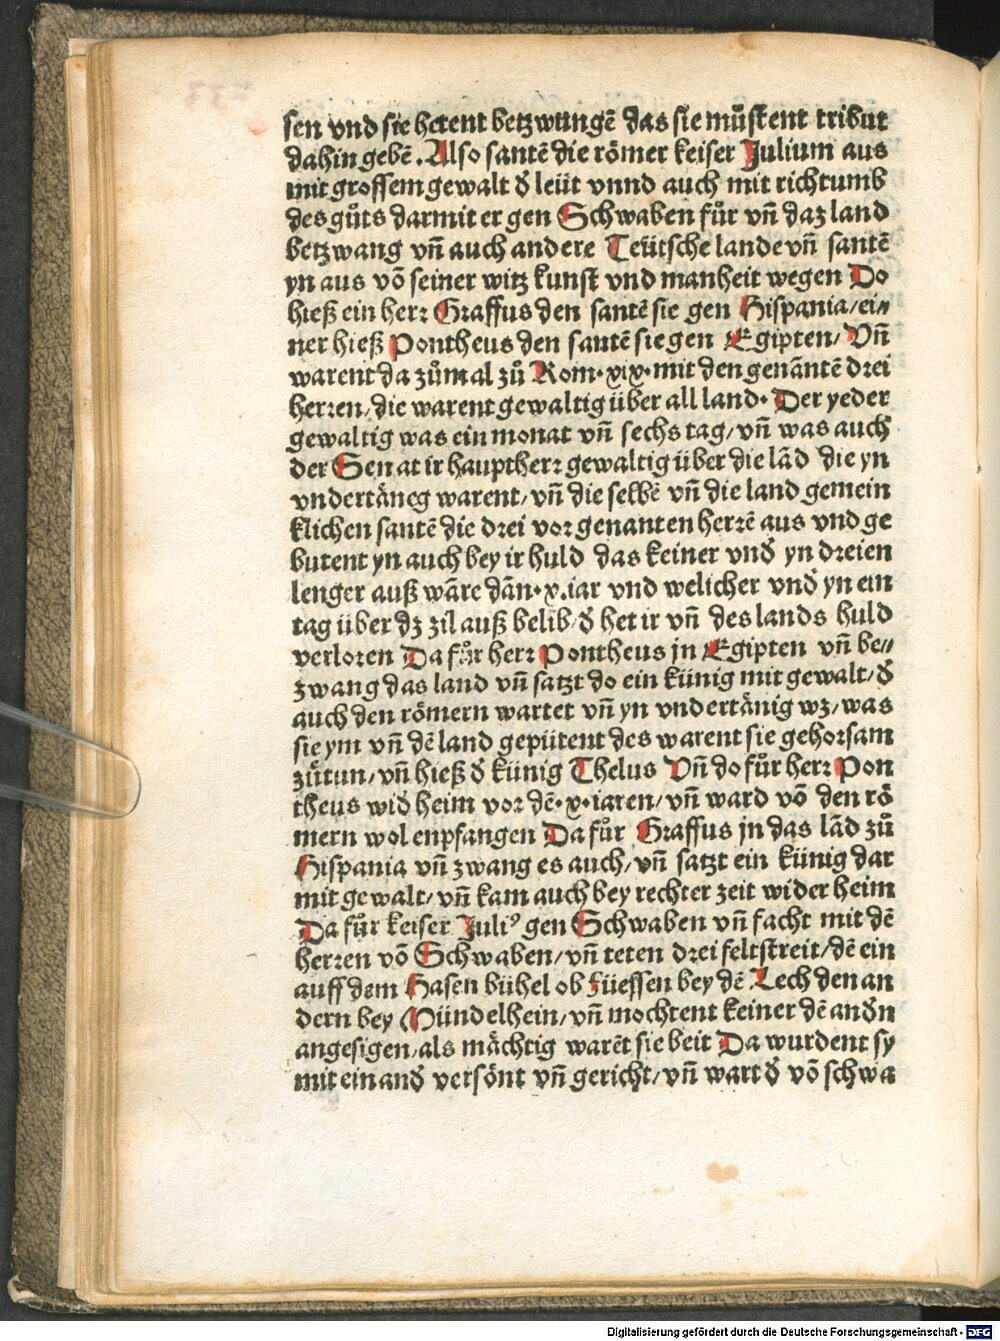 sen vnd sie hetent betzwungē das sie můstent tribut
dahin gebē. Also santē die römer keiser Julium aus
mit grossem gewalt d̓ leüt vnnd auch mit richtumb
des gůts darmit er gen Schwaben fůr vn̄ daz land
betzwang vn̄ auch andere Teütsche lande vn̄ santē
yn aus vō seiner witz kunst vnd manheit wegen Do
hieß ein herr Graffus den santē sie gen Hispania/ei⸗
ner hieß Pontheus den santē sie gen Egipten/ Vn̄
warent da zůmal zů Rom·xix·mit den genantē drei
herren/die warent gewaltig über all land· Der yeder
gewaltig was ein monat vn̄ sechs tag/vn̄ was auch
der Senat ir hauptherr gewaltig über die lād die yn
vndertäneg warent/vn̄ die selbē vn̄ die land gemein
klichen santē die drei vor genanten herrē aus vnd ge
butent yn auch bey ir huld das keiner vnd̓ yn dreien
lenger auß wäre dān·x.iar vnd welicher vnd̓ yn ein
tag über dz zil auß belib/d̓ het ir vn̄ des lands huld
verloren Da fůr herr Pontheus jn Egipten vn̄ be⸗
zwang das land vn̄ satzt do ein künig mit gewalt/d̓
auch den römern wartet vn̄ yn vndertänig wz/was
sie ym vn̄ dē land gepütent des warent sie gehorsam
zůtun/vn̄ hieß d̓ künig Thelus Vn̄ do fůr herr Pon
theus wid̓ heim vor dē·x·iaren/vn̄ ward vō den rö
mern wol enpfangen Da fůr Graffus jn das lād zů
Hispania vn̄ zwang es auch/vn̄ satzt ein künig dar
mit gewalt/vn̄ kam auch bey rechter zeit wider heim
Da fůr keiser Juliꝰ gen Schwaben vn̄ facht mit dē
herren vō Schwaben/vn̄ teten drei feltstreit/dē ein
auff dem Hasen bühel ob Füessen bey dē Lech den an
dern bey Mündelhein/vn̄ mochtent keiner dē and̓n
angesigen/als mächtig warēt sie beit Da wurdent sy
mit einand̓ versönt vn̄ gericht/vn̄ wart d̓ vō schwa
Digitalisierung gefördert durch die Deutsche Forschungsgemeinschaft - DFG